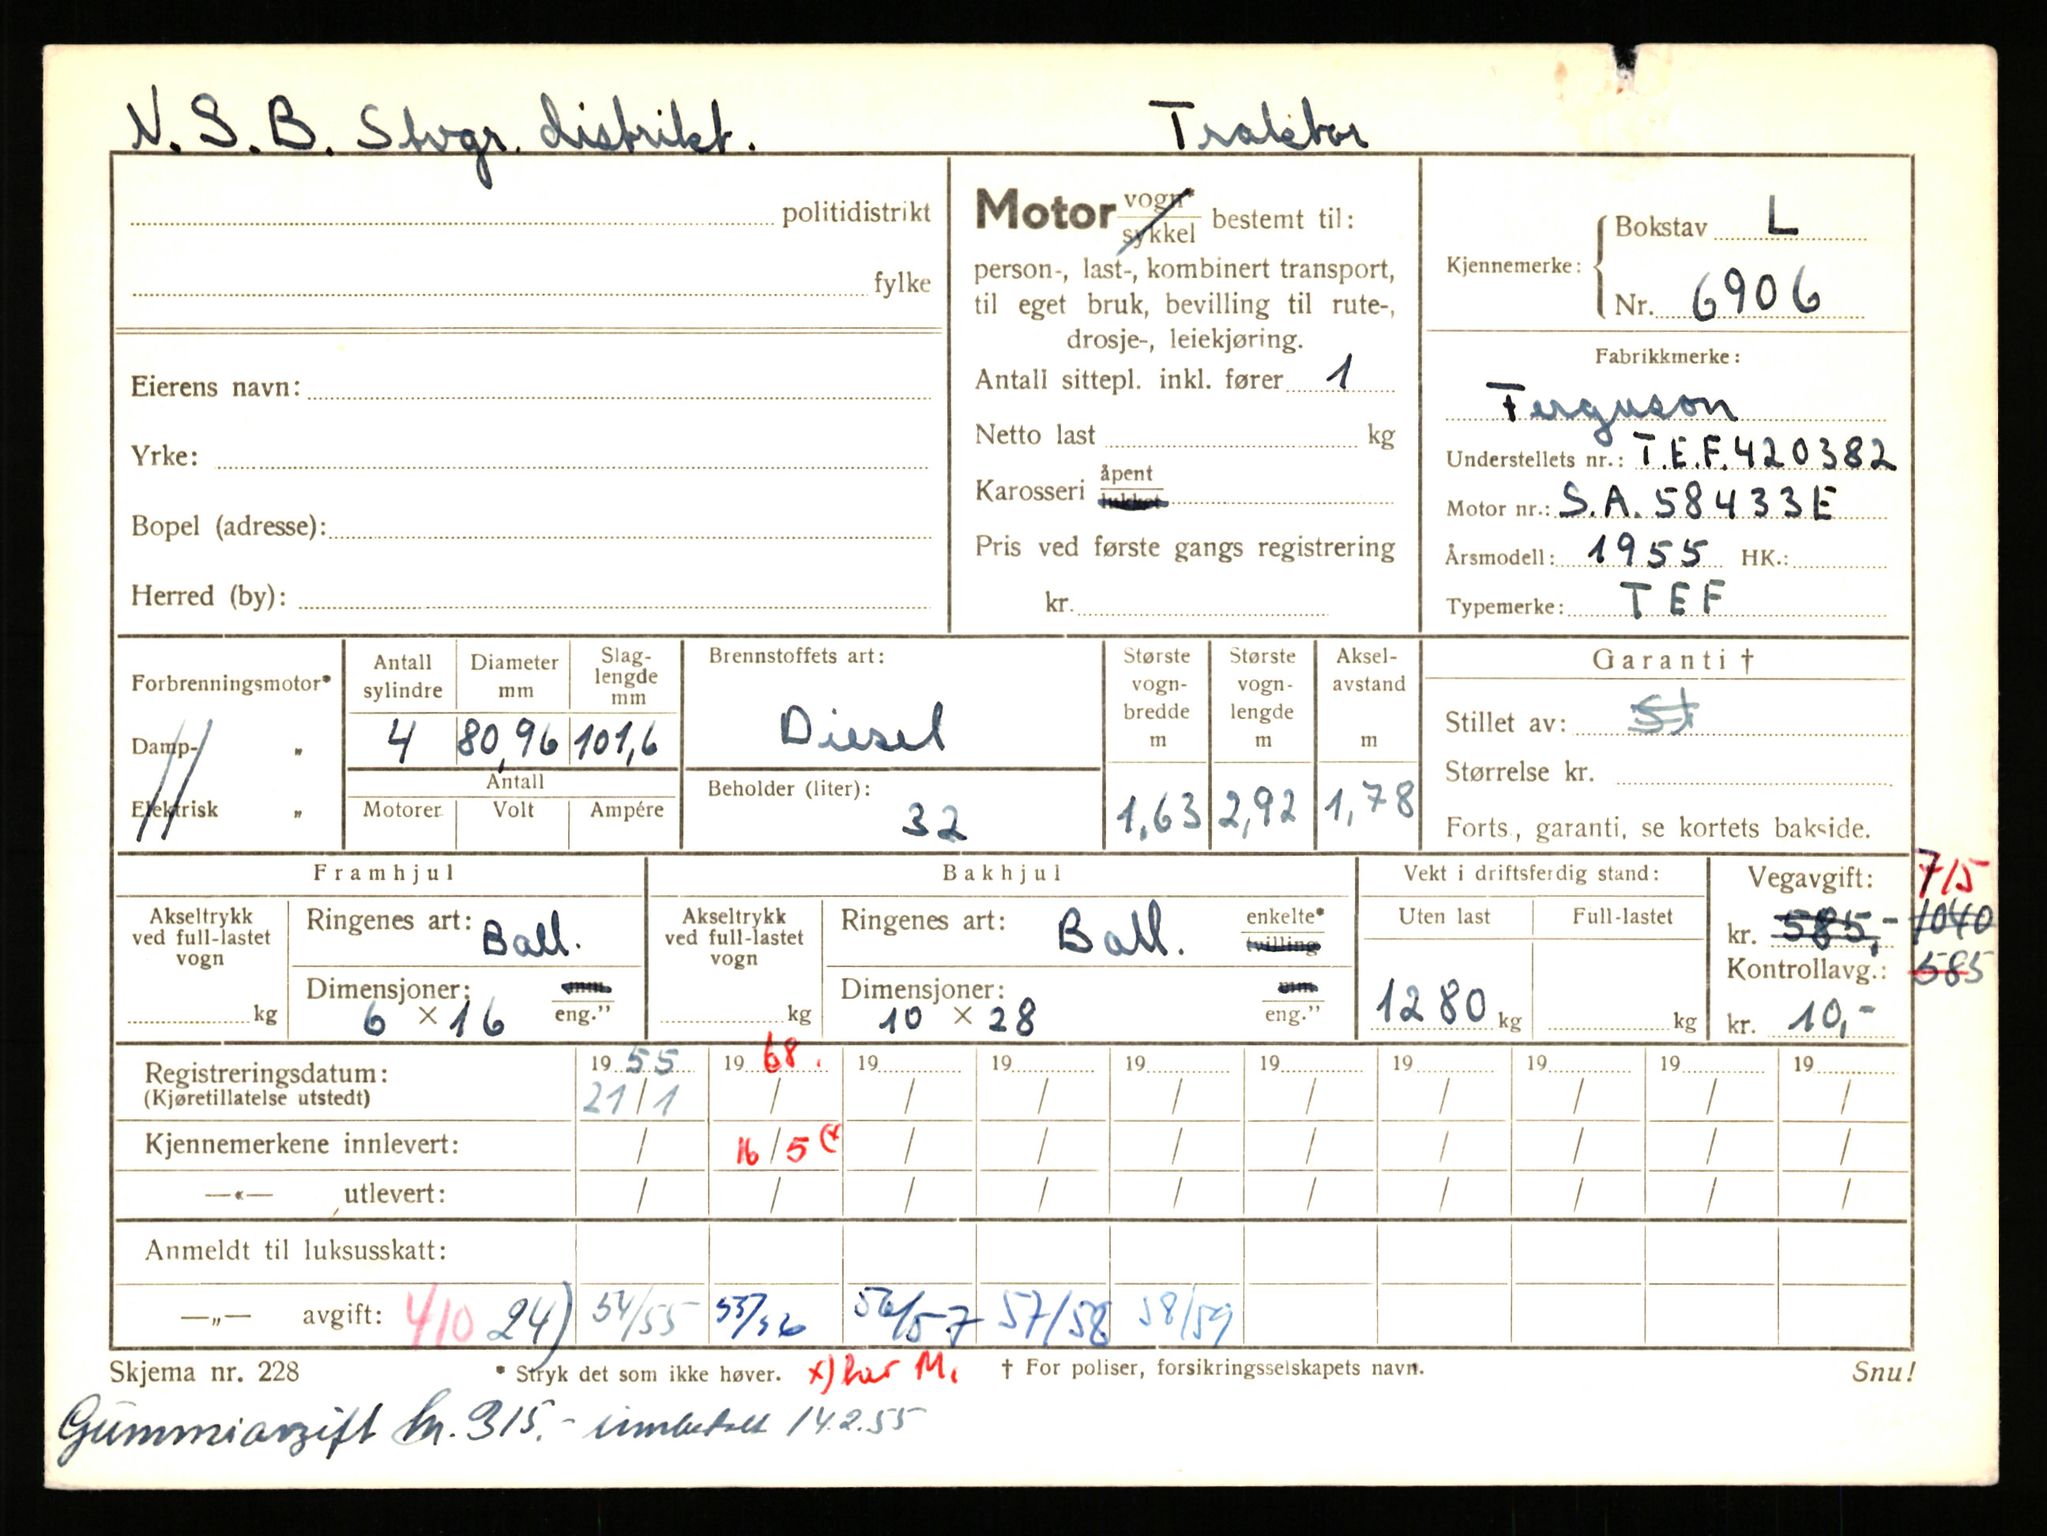 N. S. B. Stvgr. distrikt. Traktor
politidistrikt
fylke
Eierens navn:
Yrke:
Bopel (adresse):
Herred (by):
Motor vogn* sykkel bestemt til:
person-, last-, kombinert transport,
til eget bruk, bevilling til rute-,
drosje-, leiekjøring.
Antall sittepl. inkl. fører 1
Netto last kg
Karosseri åpent lukket
Pris ved første gangs registrering
kr.
Kjennemerke: Bokstav L
Nr. 6906
Fabrikkmerke:
Ferguson
Understellets nr.: T.E.F. 420382
Motor nr.: S.A. 58433E
Årsmodell: 1955 HK.:
Typemerke: TEF
Forbrenningsmotor*
Damp- „
Elektrisk „
Antall sylindre
Diameter mm
Slag-lengde mm
4 80,96 101,6
Antall
Motorer Volt Ampére
Brennstoffets art:
Diesel
Beholder (liter):
32
Største vogn-bredde m
Største vogn-lengde m
Aksel-avstand m
1,63 2,92 1,78
Garanti †
Stillet av: St
Størrelse kr.
Forts., garanti, se kortets bakside.
Framhjul
Akseltrykk ved full-lastet vogn
kg
Ringenes art: Ball.
Dimensjoner: mm
6 × 16 eng.”
Bakhjul
Akseltrykk ved full-lastet vogn
kg
Ringenes art: Ball. enkelte* tvilling
Dimensjoner: mm
10 × 28 eng.”
Vekt i driftsferdig stand:
Uten last Full-lastet
1280 kg kg
Vegavgift: 715
kr. 585,- 1040
Kontrollavg.: 585
kr. 10,-
Registreringsdatum: 19 55 19 68. 19 19 19 19 19 19 19 19
(Kjøretillatelse utstedt) 21/1 / / / / / / / / /
Kjennemerkene innlevert: / 16/5 (x / / / / / / / /
—«— utlevert: / / / / / / / / / /
Anmeldt til luksusskatt:
—„— avgift: 410 24) 54/55 55/56 56/57 57/58 58/59
Skjema nr. 228 * Stryk det som ikke høver. x) har M. † For poliser, forsikringsselskapets navn. Snu!
Gummiavgift kr. 315.- innbetalt 14.2.55